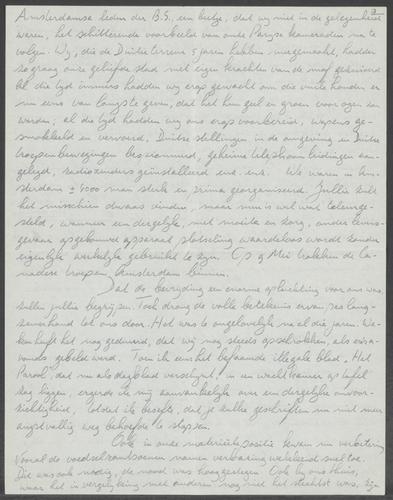 Amsterdamse leden der B.S. een beetje, dat wij niet in de gelegenheid
waren, het schitterende voorbeeld van onze Parijse kameraden na te
volgen. Wij, die de Duitse terreur 5 jaren hebben meegemaakt, hadden
zo graag onze geliefde stad met eigen krachten van de mof gezuiverd
Al die tijd immers hadden wij erop gewacht om die vuile honden er
nu eens van langs te geven, dat het hun geel en groen voor ogen zou
worden; al die tijd hadden wij ons erop voorbereid, wapens ge-
smokkeld en vervoerd, Duitse stellingen in de omgeving en Duitse
troepenbewegingen bespionneerd, geheime telephoonverbindingen aan-
gelegd, radiozenders geïnstalleerd enz. enz. We waren in Am-
sterdam ± 6000 man sterk en prima georganiseerd. Jullie zult
het misschien dwaas vinden, maar men is wel wat teleurge-
steld, wanneer een dergelijk, met moeite en zorg, onder levens-
gevaar opgebouwd apparaat plotseling waardeloos wordt zonder
eigenlijk werkelijk gebruikt te zijn. Op 9 Mei trokken de Ca-
nadese troepen Amsterdam binnen.
Dat de bevrijding een enorme opluchting voor ons was,
zullen jullie begrijpen. Toch drong de volle betekenis ervan pas lang-
zamerhand tot ons door. Het was te ongelooflijk na al die jaren. We-
ken heeft het nog geduurd, dat wij nog steeds opschrokken, als er 's a-
vonds gebeld werd. Toen ik eens het befaamde illegale blad "Het
Parool", dat nu als dagblad verschijnt, in een wachtkamer op tafel
zag liggen, ergerde ik mij aanvankelijk over een dergelijke onvoor-
zichtigheid, totdat ik besefte, dat je zulke geschriften nu niet meer
angstvallig weg behoefde te stoppen.
Ook in onze materiële positie kwam nu verbetering
Vooral de voedselrantsoenen namen verbazingwekkend snel toe.
Dit was ook nodig, de nood was hoog gestegen. Ook bij ons thuis,
waar het in vergelijking met anderen nog niet het slechtst was, zijn